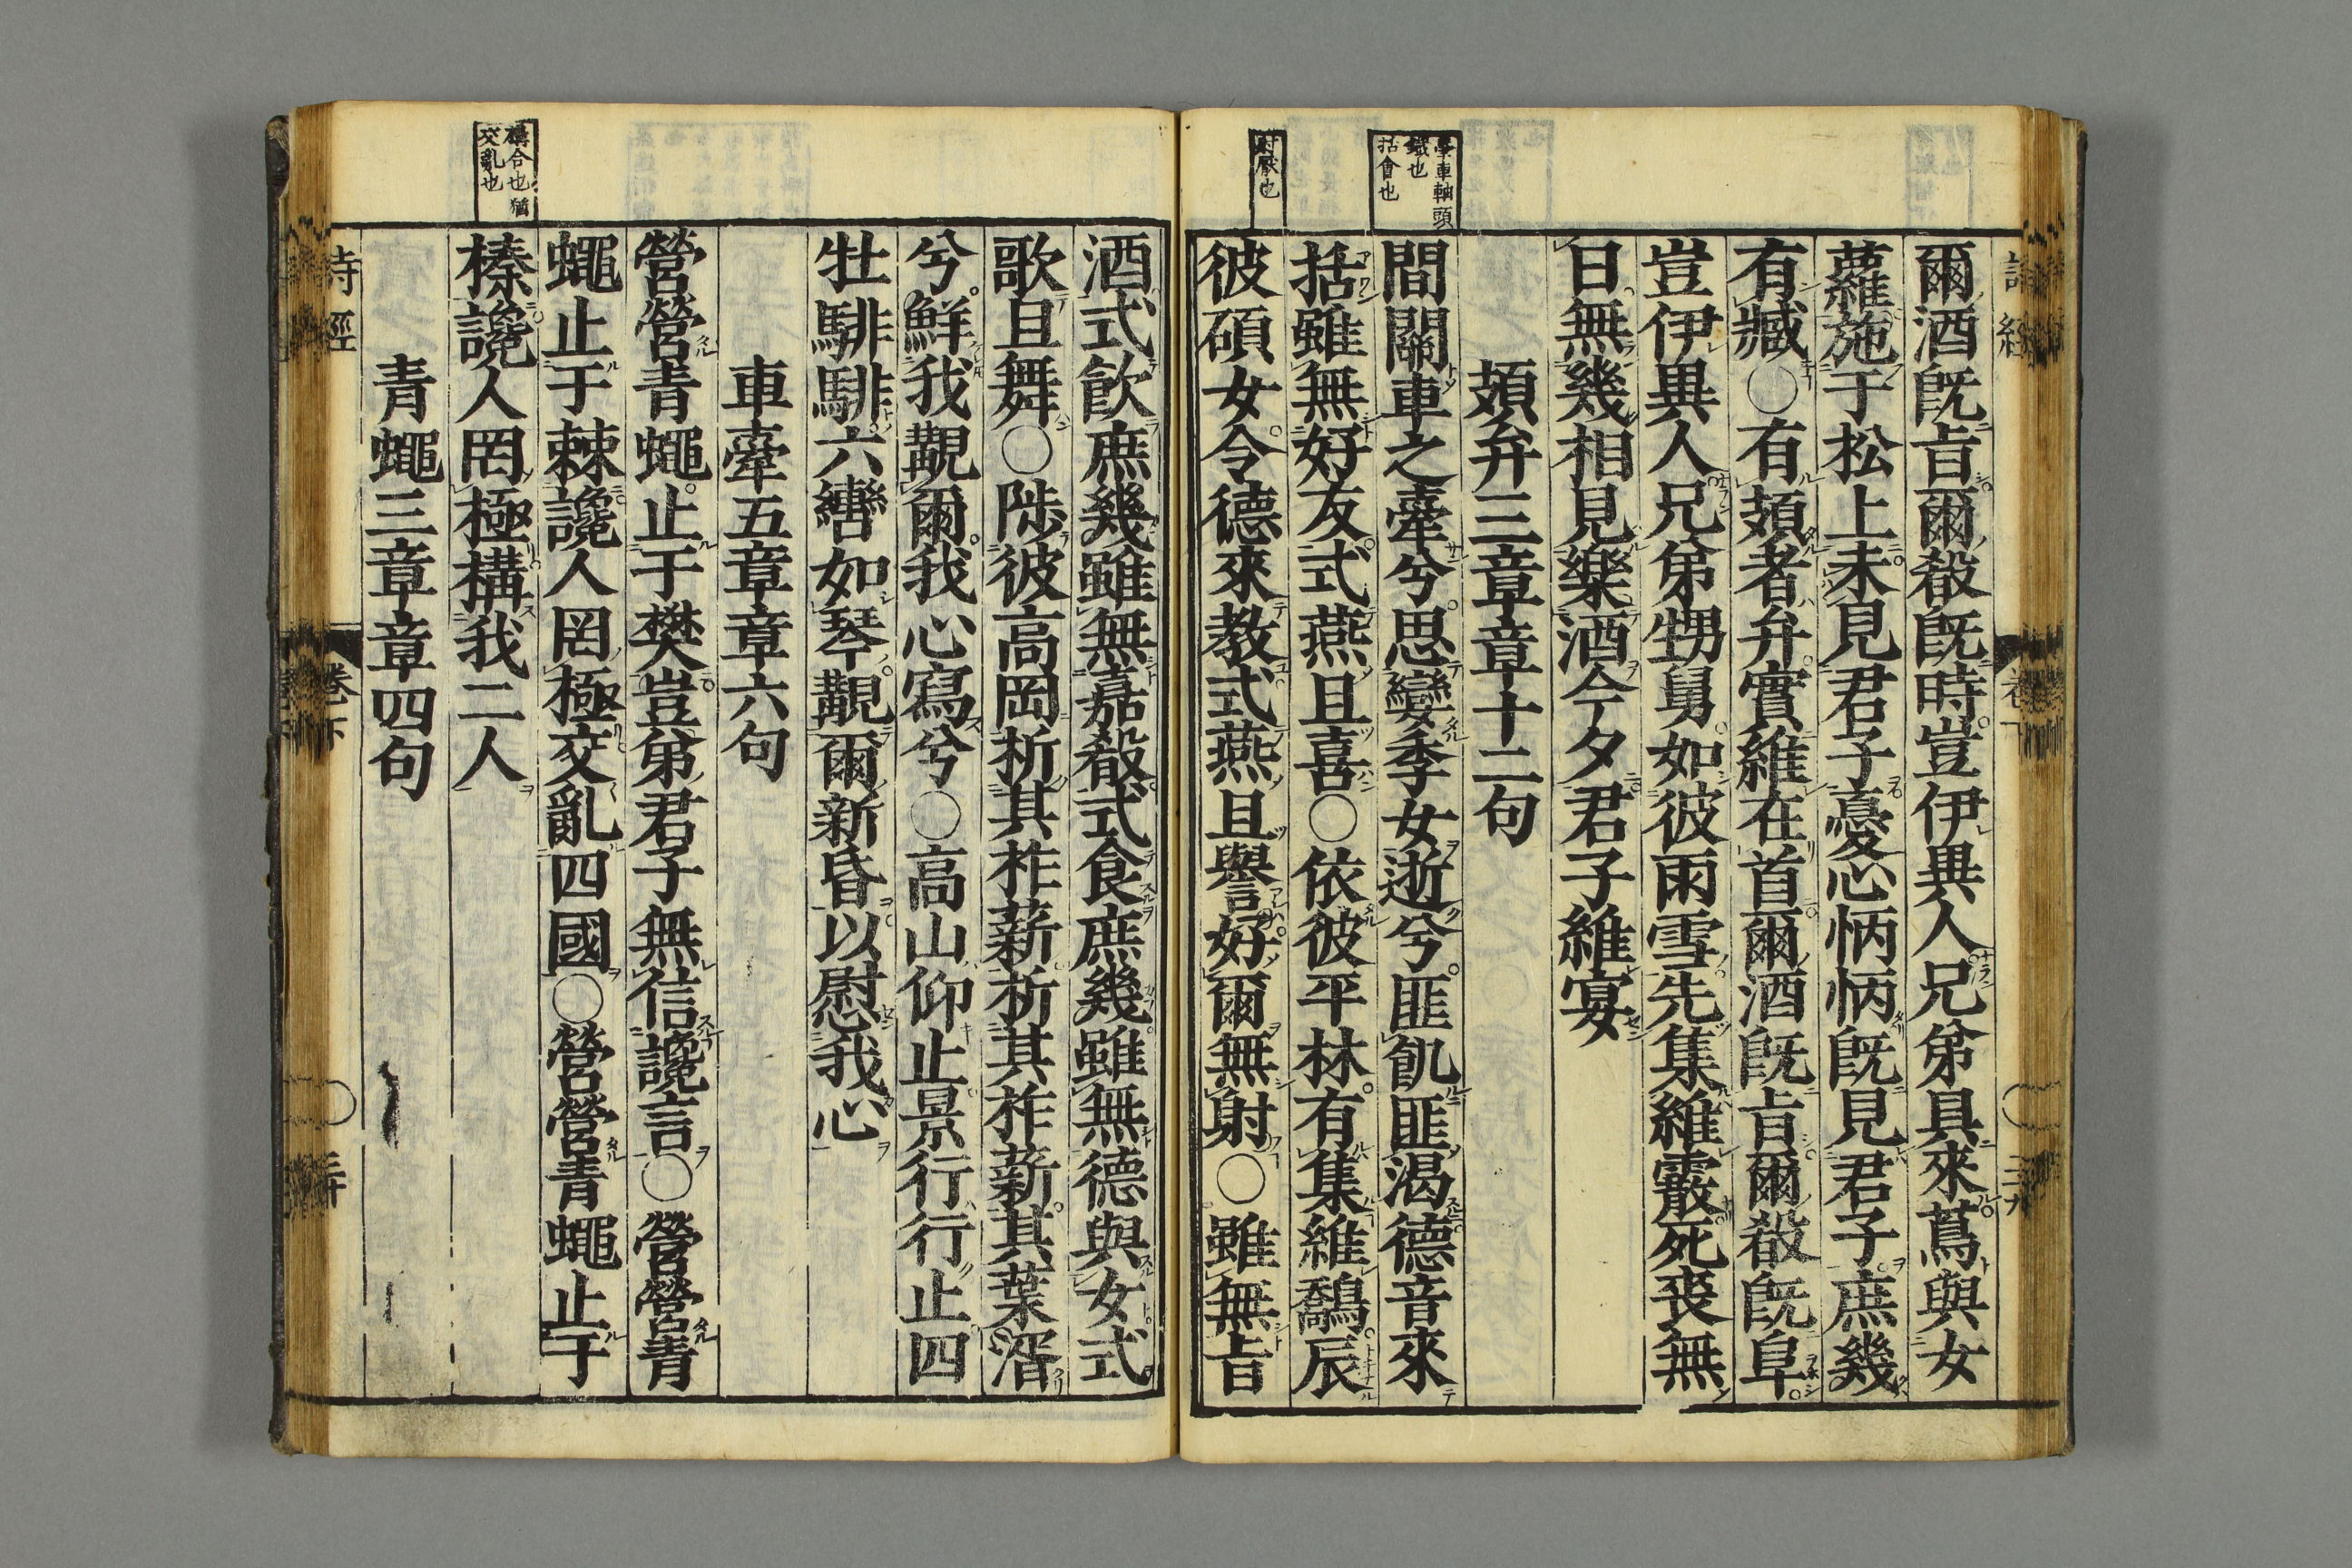 爾酒既㫖爾殽既時豈伊異人兄弟具來蔦與女
蘿施于松上未見君子憂心怲怲既見君子庶幾
有臧○有頍者弁實維在首爾酒既㫖爾殽既阜
豈伊異人兄弟甥舅如彼雨雪先集維霰死喪無
日無幾相見樂酒今夕君子維宴
頍弁三章章十二句
舝車軸頭
鐵也
括會也
間關車之舝兮思孌季女逝兮匪飢匪渴德音來
括雖無好友式燕且喜○依彼平林有集維鷮辰
射厭也
彼碩女令德來教式燕且譽好爾無射○雖無㫖
酒式飲庶幾雖無嘉殽式食庶幾雖無德與女式
歌且舞○陟彼高岡析其柞薪析其柞薪其葉湑
兮鮮我覯爾我心寫兮○高山仰止景行行止四
牡騑騑六轡如琴覯爾新昏以慰我心
車舝五章章六句
營營青蠅止于樊豈弟君子無信讒言○營營青
蠅止于棘讒人罔極交亂四國○營營青蠅止于
構合也猶
交亂也
榛讒人罔極構我二人
青蠅三章章四句
詩經
卷下